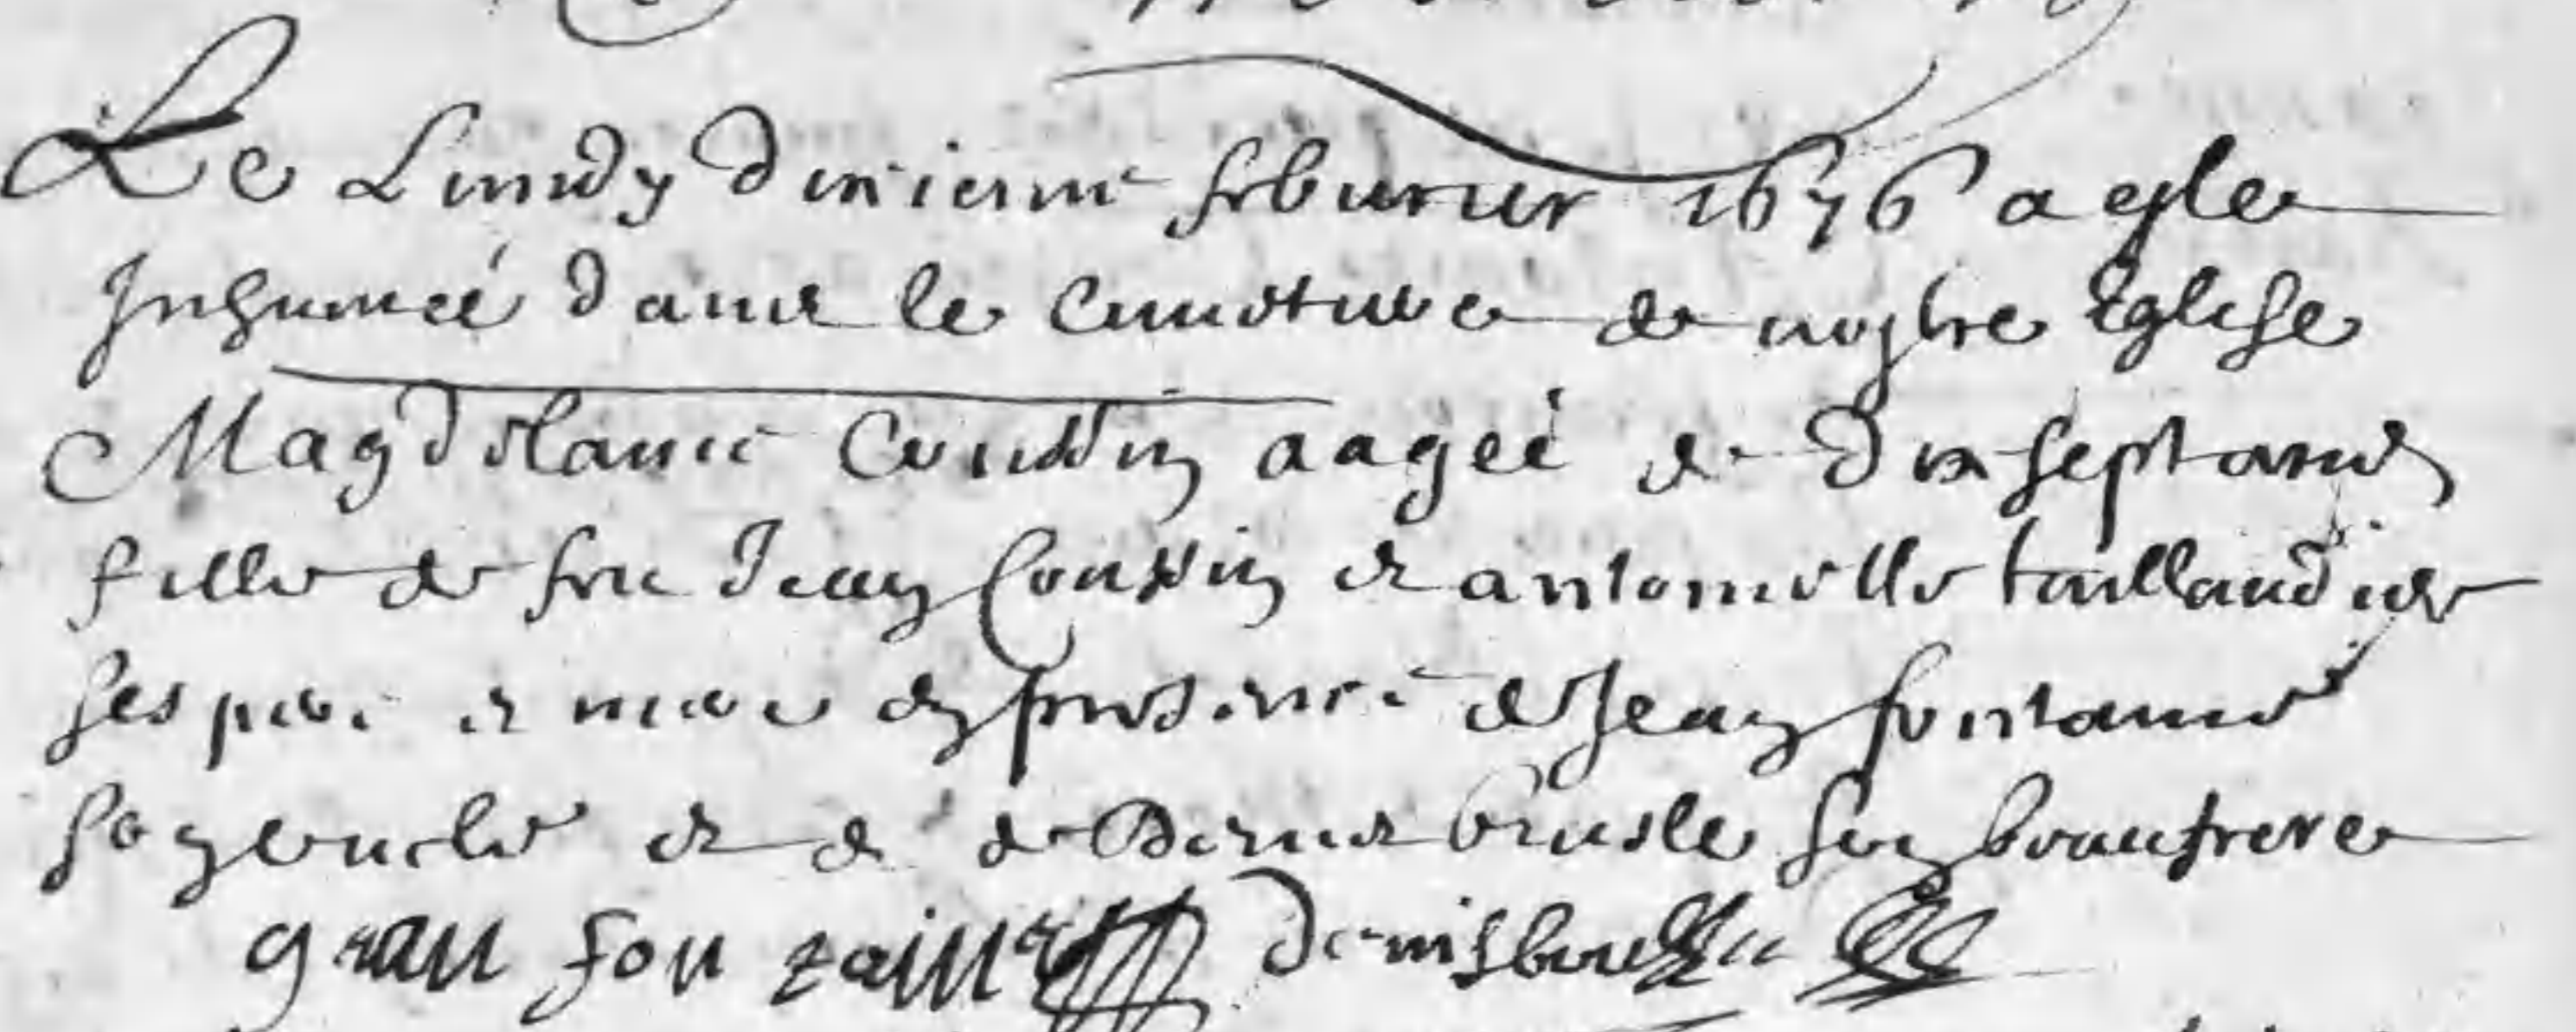 Le Lundy dixieme febvrier 1676 a este
Inhumée dans le cimetiere de nostre Eglise
Magdelaine Coussin aagée de dix sept ans
fille de feu Jean Coussin et antoinette taillandier
ses pere et mere en presence de Jean fontaine
son oncle et de de Denis brusle son beaufrere
Jean fontaine Denis brusle